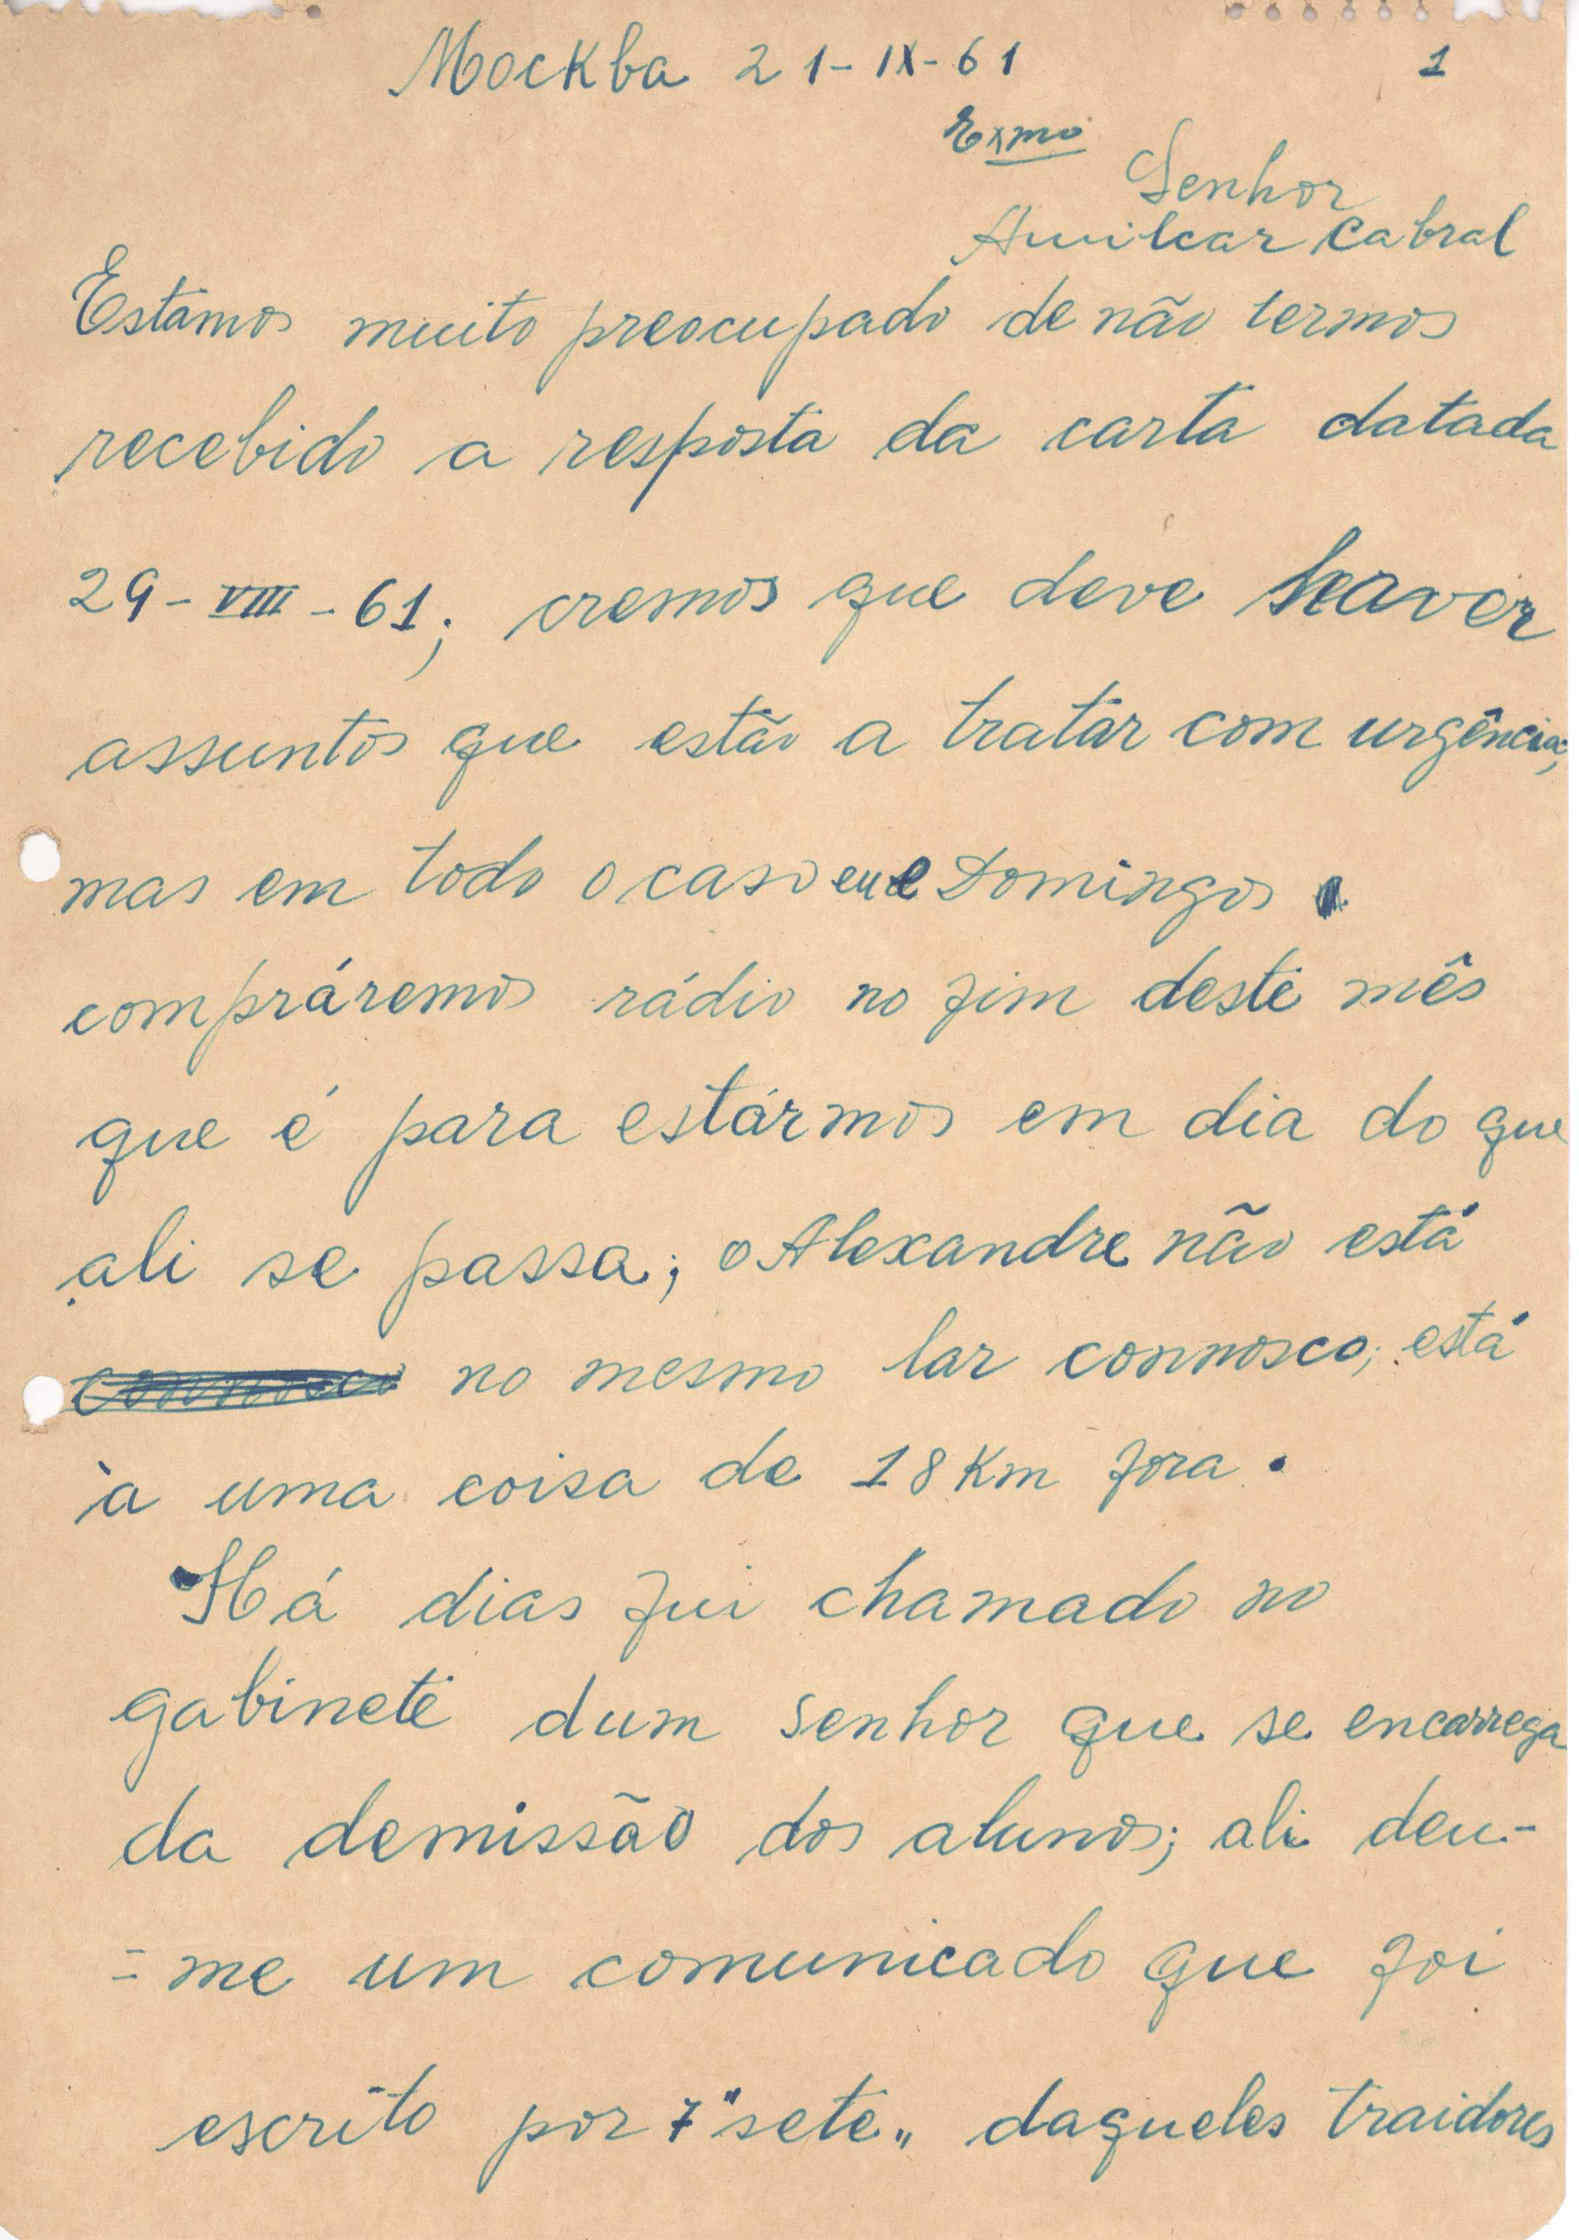 Москва 21-IX-61 1
Exmo
Senhor
Amilcar Cabral
Estamos muito preocupado de não termos
recebido a resposta da carta datada
29-VIII-61; cremos que deve haver
assuntos que estão a tratar com urgência;
mas em todo o caso eu e Domingos
compráremos rádio no fim deste mês
que é para estármos em dia do que
ali se passa; o Alexandre não está
connosco no mesmo lar connosco; está
à uma coisa de 18 Km fora.
Há dias fui chamado no
gabinete dum senhor que se encarrega
da demissão dos alunos; ali deu-
-me um comunicado que foi
escrito por 7 "sete„ daqueles traidores